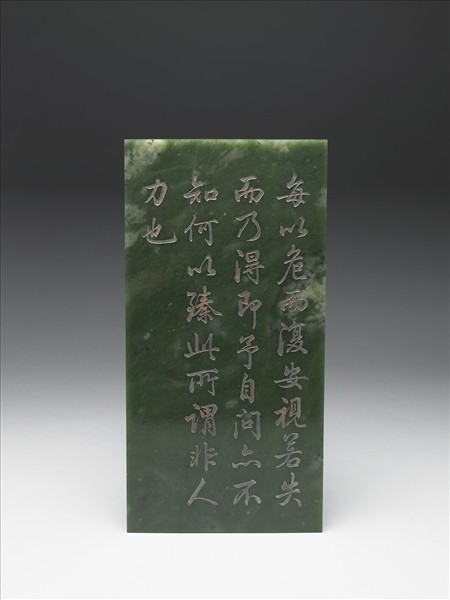 每以危而復安視若失
而乃得即予自問亦不
知何以臻此所謂非人
力也